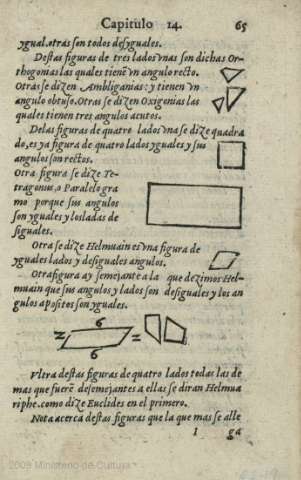 Capitulo 14. 65
ygual.otras son todos desyguales.
Destas figuras de tres lados vnas son dichas Or-
thogomas las quales tienē vn angulo recto.
Otras se dizen Ambliganias: y tienen vn
angulo obtuso.Otras se dizen Oxigenias las
quales tienen tres angulos acutos.
Delas figuras de quatro lados vna se dize quadra
do, es ya figura de quatro lados yguales y sus
angulos son rectos.
Otra figura se dize Te-
tragonus, o Paralelogra
mo porque sus angulos
son yguales y los lados de
siguales.
Otra se dize Helmuain es vna figura de
yguales lados y desiguales angulos.
Otra figura ay semejante a la que dezimos Hel-
muain que sus angulos y lados son desiguales y los an
gulos apositos son yguales.
6
2 2
6
Vltra destas figuras de quatro lados todas las de
mas que fuerē desemejantes a ellas se diran Helmua
riphe.como dize Euclides en el primero.
Nota acerca destas figuras que la que mas se alle
I ga
2009 Ministerio de Cultura